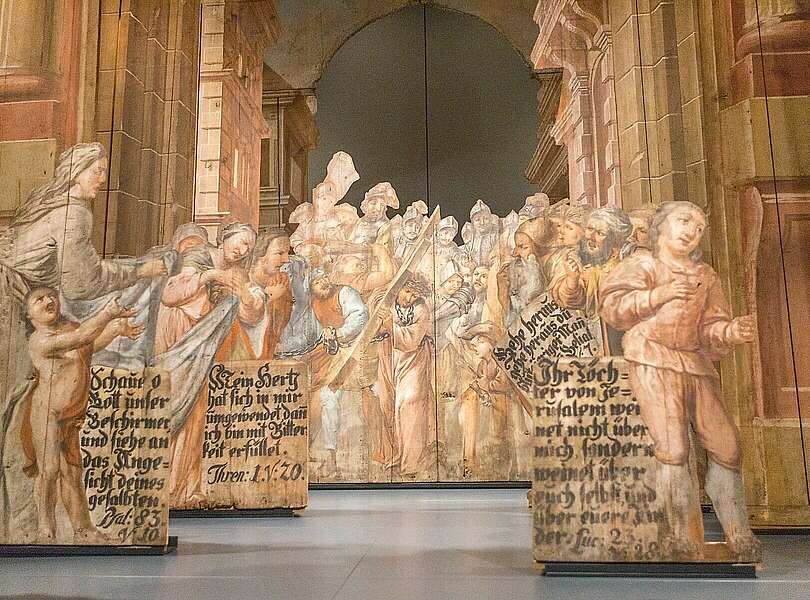 Schaue o
Gott unser
Beschirmer
und siehe an
das Ange-
sicht deines
gesalbten
Psal: 83
V. 10
Mein Hertz
hat sich in mir
umgewendet dañ
ich bin mit Bitter
keit erfüllet.
Thren: 1. V: 20.
Gehe heraus
du
Ihr Töch-
ter von Je-
rusalem wei
net nicht über
mich sondern
weinet über
euch selbst und
über euere
der. Luc: 23
28